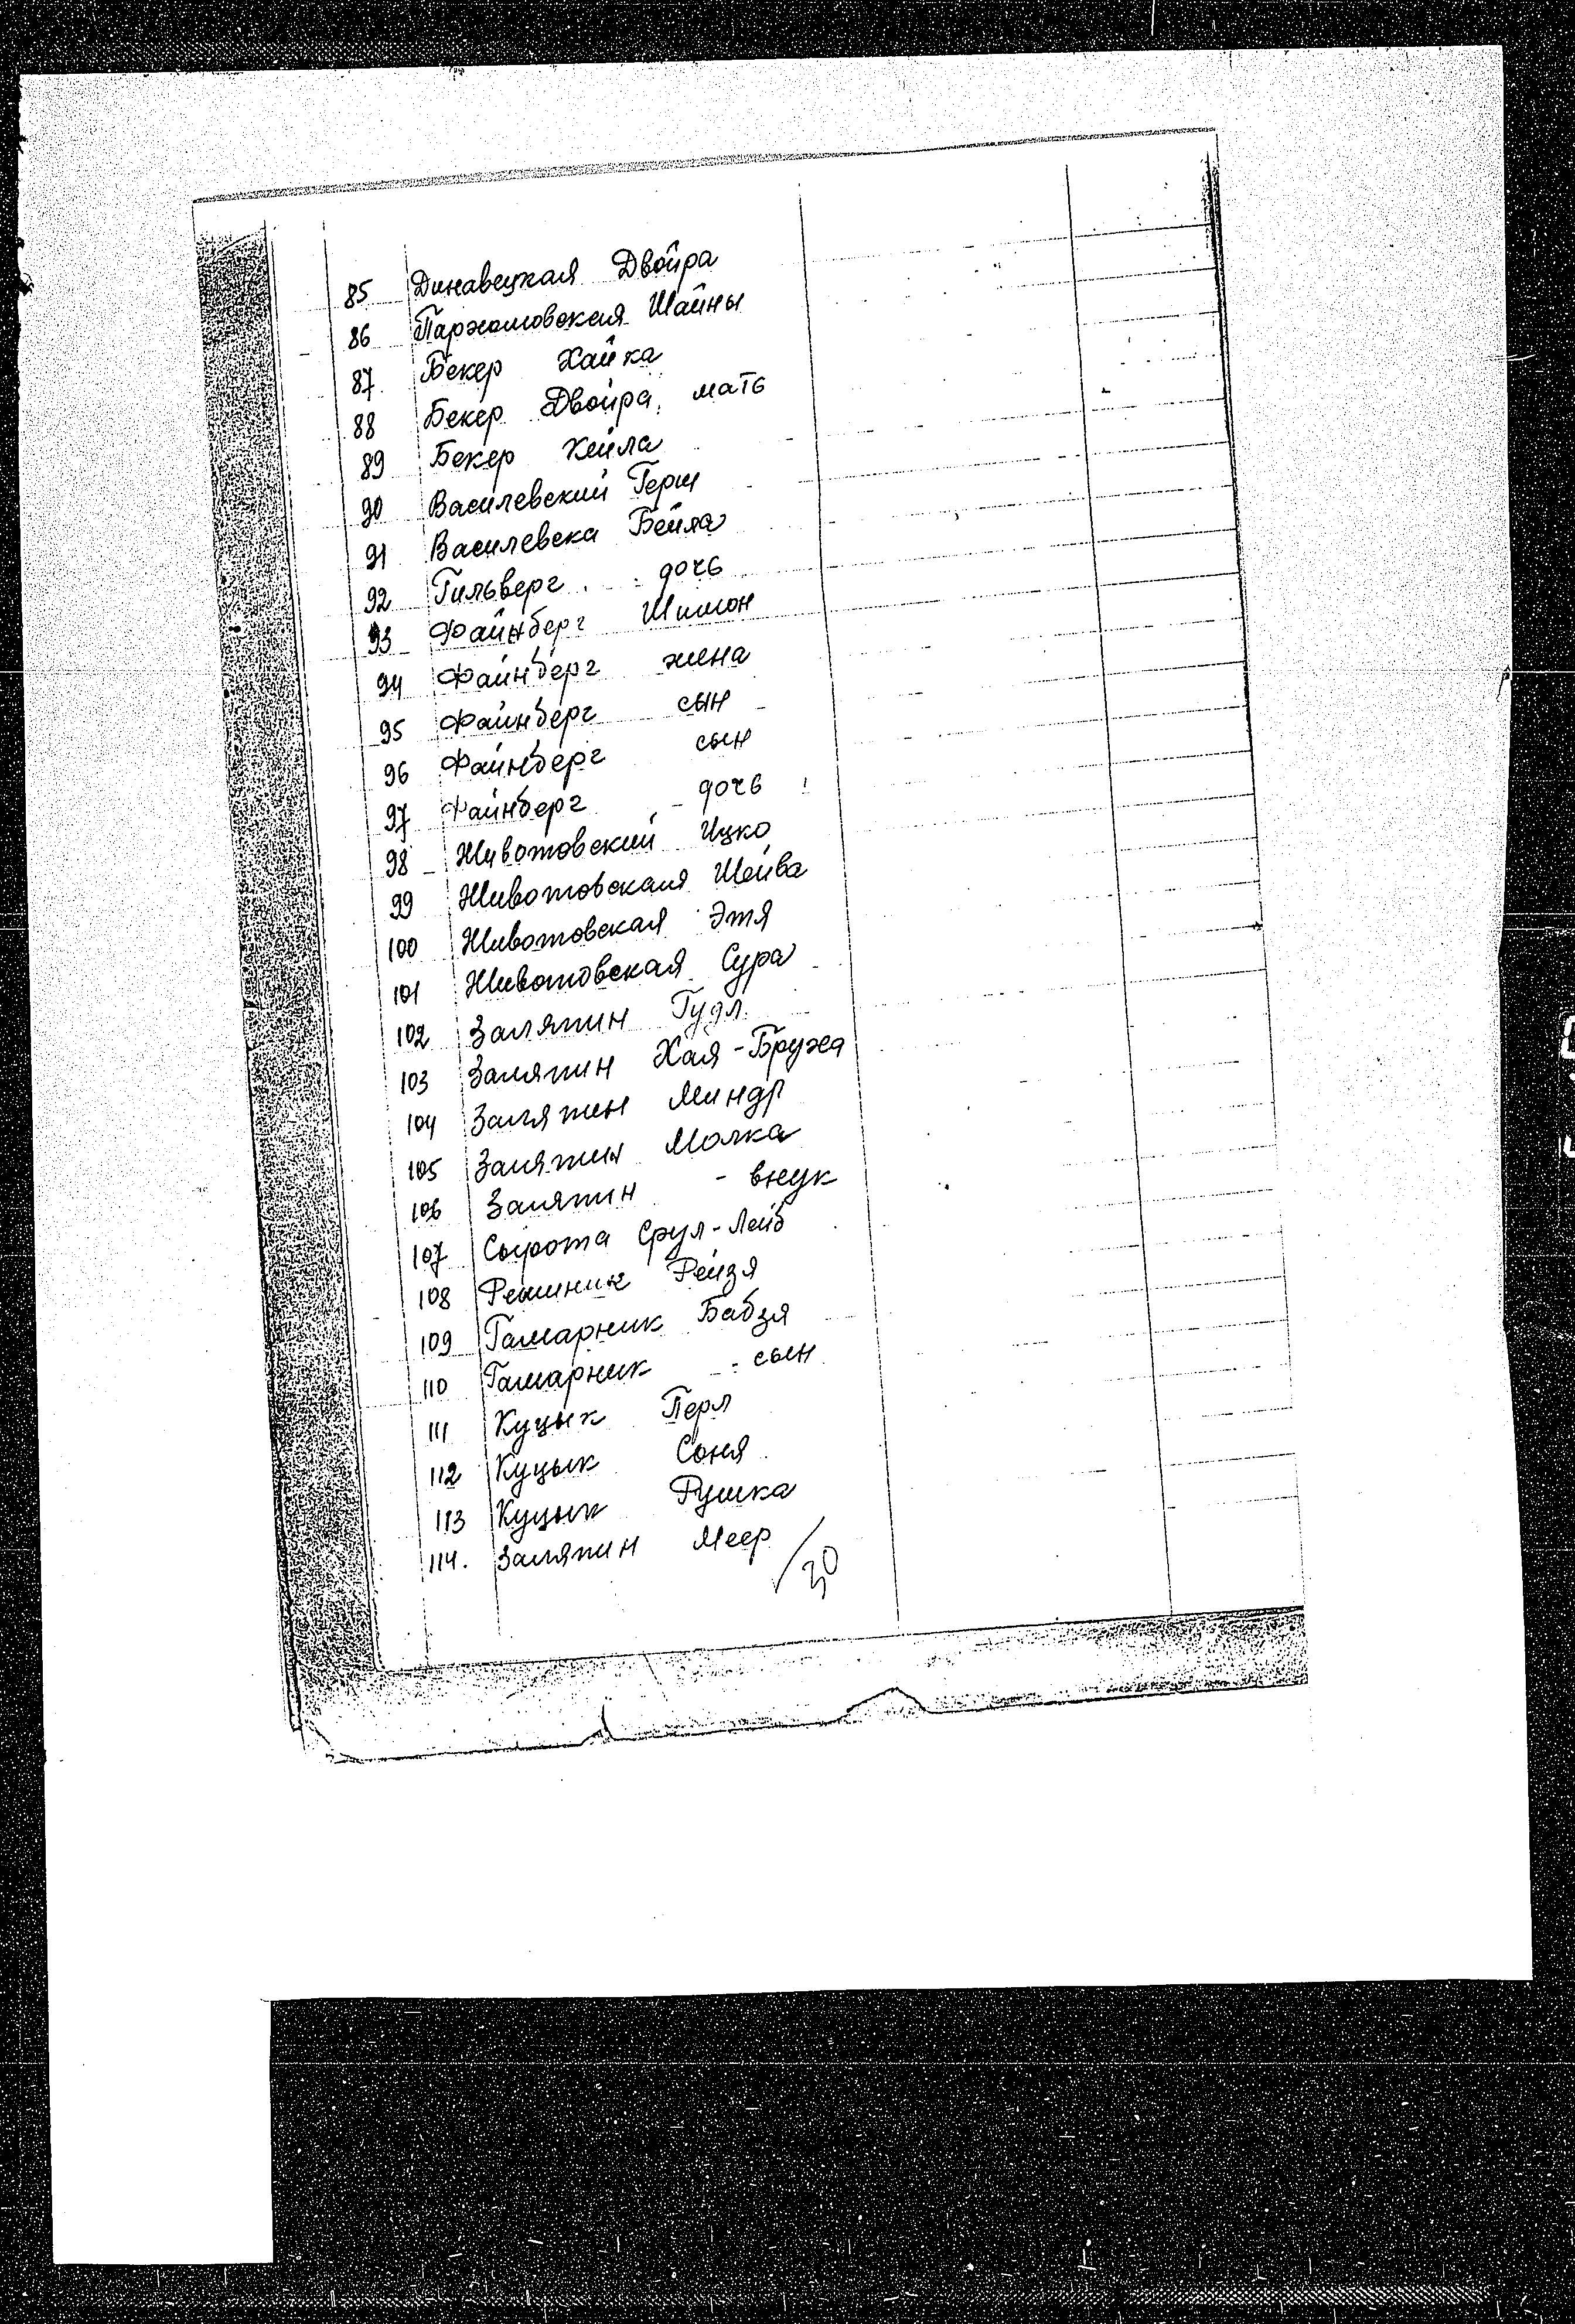 85 Динавецкая Двойра
86 Пархомовская Шайны
87. Бекер Хайка
88 Бекер Двойра, мать
89 Бекер Хейла
90 Василевский Герш
91 Василевска Бейла
92 Гильверг - дочь
93 Файнберг Шимон
94 Файнберг жена
95 Файнберг сын
96 Файнберг сын
97 Файнберг - дочь
98 Животовский Ицко
99 Животовская Шейва
100 Животовская Этя
101 Животовская Сура
102 Заляпин Гудл
103 Заляпин Хая-Бруха
104 Заляпин Миндл
105 Заляпин Молка
106 Заляпин - внук
107 Сырота Срул-Лейб
108 Рейзя
109 Гамарник Бабзя
110 Гамарник - сын
111 Куцык Перл
112 Куцык Соня
113 Куцык Рушка
114. Заляпин Меер
/30